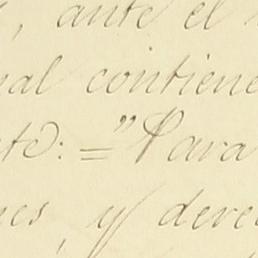 , ante el
al contiene
to: = "Para
es, y dere